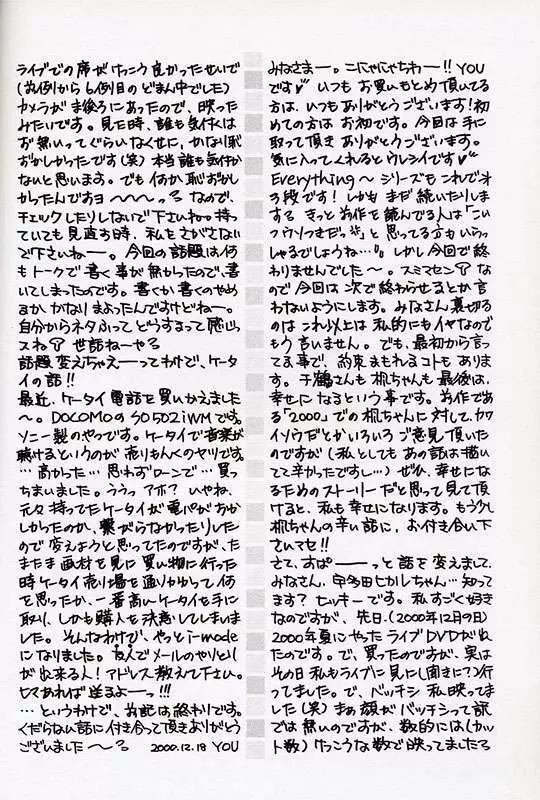 みなさまー。こにゃにゃちわー!! YOU
です♥ いつもお買いもとめ頂いてる
方は、いつもありがとうございます!初
めての方はお初です。今回は手に
取って頂きありがとうございます。
気に入ってくれるとウレシイです♥
Everything〜シリーズもこれでオ
3段です!しかもまだ続いたりしま
する きっと前作を読んでる人は「こい
つウソつきだっ」と思ってる方もいらっ
しゃるでしょうね…。しかし今回で終
わりませんでした〜。スミマセン な
ので今回は次で終わらせるとか言
わないようにします。みなさん裏切る
のはこれ以上は私的にもイヤなので
もう言いません。でも、最初から言っ
てる事で、約束まもれるコトもありま
す。千鶴さんも梶ちゃんも最後は、
幸せになるという事です。前作であ
る「2000」での梶ちゃんに対して、カワ
イソウだとかいろいろご意見頂いた
のですが(私としてもあの話は描い
てて辛かったですし…)ぜひ、幸せにな
るためのストーリーだと思って見て頂
けると、私も幸せになります。もう少し
梶ちゃんの辛い話に、お付き合い下
さいマセ!!
さて、すぱーーっと話を変えまして、
みなさん、宇多田ヒカルちゃん…知って
ます?ヒッキーです。私すごく好き
なのですが、先日(2000年12月9日)
2000年夏にやったライブDVDが出
たのです。で、買ったのですが、実は
その日私もライブに見に(聞きに?)行
ってました。で、バッチシ私映ってま
した(笑)まぁ顔がバッチシって訳
では無いのですが、数的には(カッ
ト数)けっこうな数で映ってましたっ
ライブでの席がけっこう良かったせいで
(前列から6列目のどまん中でした)
カメラが真後ろにあったので、映った
みたいです。見た時、誰も気付くは
ず無いってぐらいなくせに、かなり恥
ずかしかったです(笑)本当誰も気付か
ないと思います。でも何か恥ずかし
かったんですヨ〜〜〜っ なので、
チェックしたりしないで下さいね。持っ
ていても見直す時、私をさがさない
で下さいねー。今回の話題は何
もトークで書く事が無かったので、書
いてしまったのです。書くか書くのやめ
るか、かなりまよったんですけどねー。
自分からネタふってどうするって感じっ
スね 世話ねーやる
話題変えちゃえーってわけで、ケータ
イの話!!
最近、ケータイ電話を買いかえました
〜。DOCOMOのSO502iWMです。
ソニー製のやつです。ケータイで音楽が
聴けるというのが売りもんくのヤツです
…高かった…思わずローンで…買っ
ちまいました。ううっアホ? いやね、
元々持ってたケータイが電パがおか
しかったのか、繋がらなかったりした
ので変えようと思ってたのですが、た
またま画材を見に買い物に行った
時ケータイ売り場を通りかかって何
を思ったか、一番高いケータイを手に
取り、しかも購入を決意してしまいま
した。そんなわけで、やっとi-mode
になりました。友人でメールのやりとり
が出来る人!アドレス教えて下さい。
ヒマあれば送るよーっ!!!
…というわけで、お話は終わりです。
くだらない話に付き合って頂きありがとう
ございました〜 2000.12.18 YOU